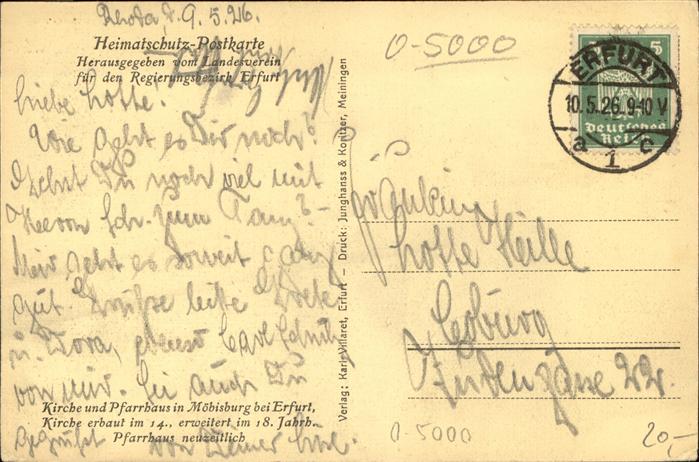 Rhoda d. 9.5.26.
Heimatschutz-Postkarte
Herausgegeben vom Landesverein
für den Regierungsbezirk Erfurt
Liebe Lotte.
Wie geht es Dir noch?
Gehst Du noch viel mit
Herrn Sch. zum Tanz? –
Mir geht es soweit ganz
gut. Grüße bitte
u. Dora, ebenso Carl
von mir. Sei auch Du
Kirche und Pfarrhaus in Möbisburg bei Erfurt,
Kirche erbaut im 14., erweitert im 18. Jahrh.
Pfarrhaus neuzeitlich
gegrüßt von Deiner
Verlag: Karl Villaret, Erfurt — Druck: Junghanss & Koritzer, Meiningen
0-5000
5
Deutsches
Reich
ERFURT
10.5.26.9-10 V
a 1 c
Fräulein
Lotte Heille
Coburg
Judengasse 22.
0-5000
20,-